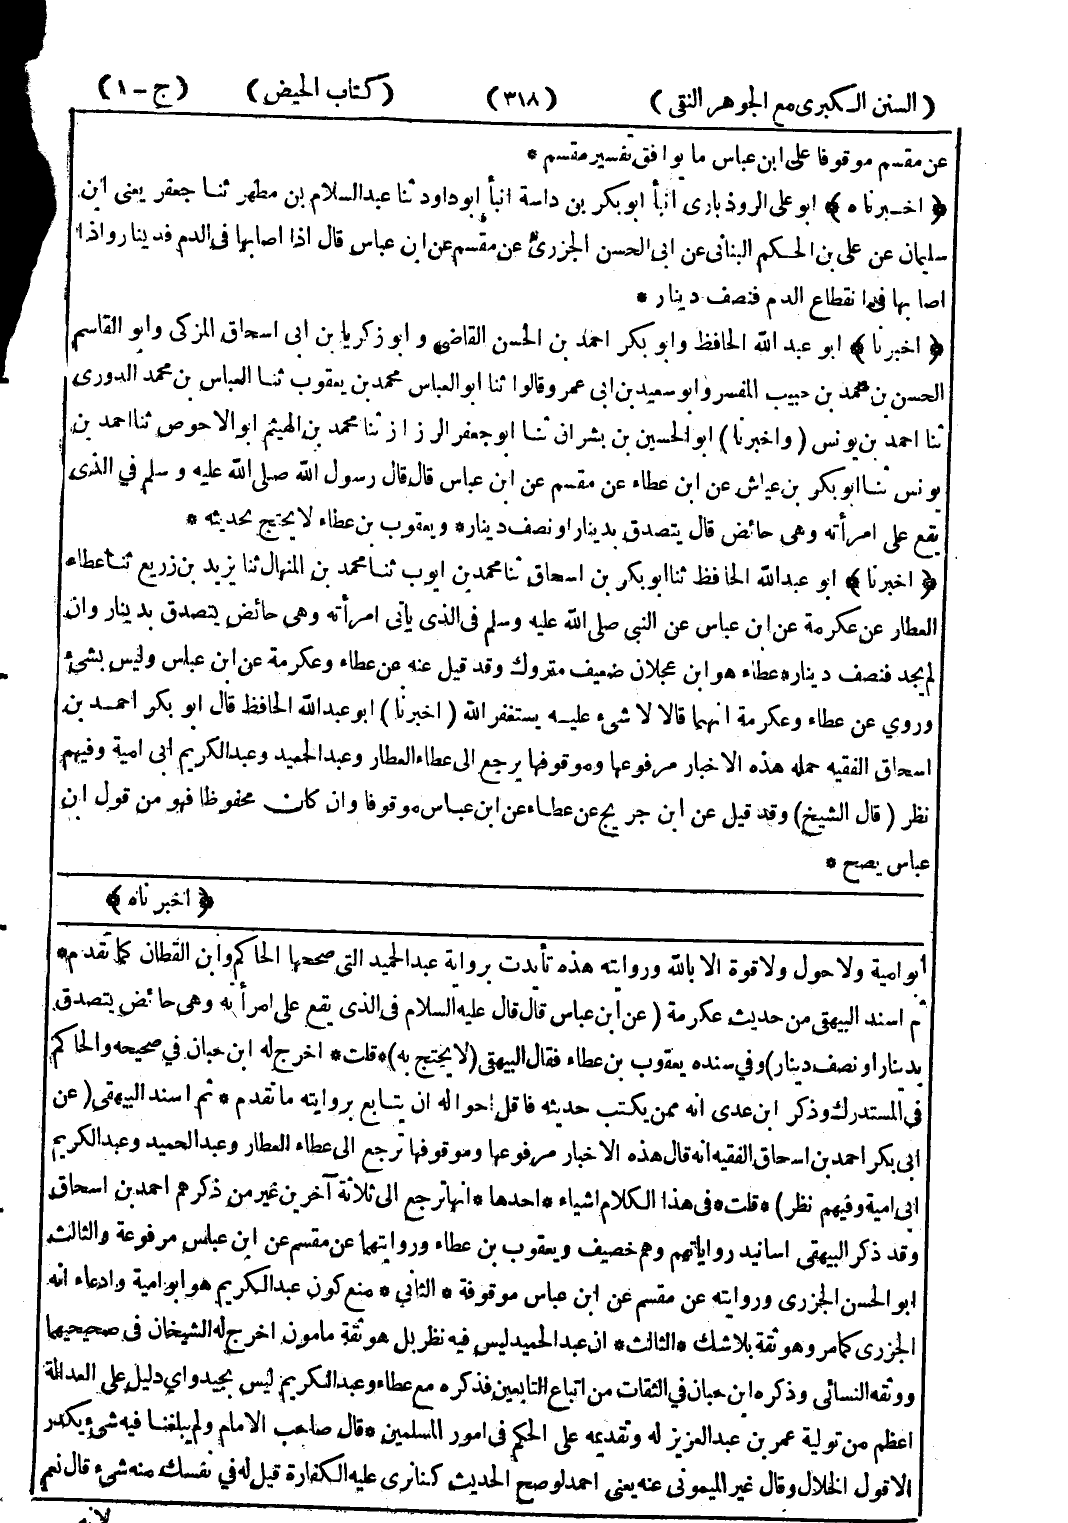 (السنن الكبرى مع الجوهر النقى) (٣١٨) (كتاب الحيض) (ج - ١)
عن مقسم موقوفا على ابن عباس ما يوافق تفسير مقسم *
﴿ اخبرناه ﴾ ابو على الروذبارى انبأ ابوبكر بن داسة انبأ ابوداود ثنا عبدالسلام بن مطهر ثنا جعفر يعنى ابن
سليمان عن على بن الحكم البنانى عن ابى الحسن الجزرى عن مقسم عن ابن عباس قال اذا اصابها فى الدم فدينار واذا
اصابها فى انقطاع الدم فنصف دينار *
﴿ اخبرنا ﴾ ابو عبد الله الحافظ وابو بكر احمد بن الحسن القاضى و ابو زكريا بن ابى اسحاق المزكى وابو القاسم
الحسن بن محمد بن حبيب المفسر وابو سعيد بن ابى عمر وقالوا ثنا ابو العباس محمد بن يعقوب ثنا العباس بن محمد الدورى
ثنا احمد بن يونس (واخبرنا) ابو الحسين بن بشران ثنا ابو جعفر الرزاز ثنا محمد بن الهيثم ابو الاحوص ثنا احمد بن
يونس ثنا ابو بكر بن عياش عن ابن عطاء عن مقسم عن ابن عباس قال قال رسول الله صلى الله عليه و سلم في الذى
يقع على امرأته وهى حائض قال يتصدق بدينار او نصف دينار * ويعقوب بن عطاء لا يحتج بحديثه *
﴿ اخبرنا ﴾ ابو عبدالله الحافظ ثنا ابو بكر بن اسحاق ثنا محمد بن ايوب ثنا محمد بن المنهال ثنا يزيد بن زريع ثنا عطاء
العطار عن عكرمة عن ابن عباس عن النبى صلى الله عليه وسلم فى الذى يأتى امرأته وهى حائض يتصدق بدينار وان
لم يجد فنصف دينار * عطاء هو ابن عجلان ضعيف متروك وقد قيل عنه عن عطاء وعكرمة عن ابن عباس وليس بشئ
وروي عن عطاء وعكرمة انهما قالا لا شىء عليه يستغفر الله (اخبرنا) ابو عبدالله الحافظ قال ابو بكر احمد بن
اسحاق الفقيه جملة هذه الاخبار مرفوعها وموقوفها يرجع الى عطاء العطار وعبدالحميد وعبدالكريم ابى امية وفيهم
نظر (قال الشيخ) وقد قيل عن ابن جريج عن عطاء عن ابن عباس موقوفا وان كان محفوظا فهو من قول ابن
عباس يصح *
﴿ اخبرناه ﴾
ابو امية ولا حول ولا قوة الا بالله وروايته هذه تأيدت برواية عبدالحميد التى صححها الحاكم وابن القطان كما تقدم *
ثم اسند البيهقى من حديث عكرمة (عن ابن عباس قال قال عليه السلام فى الذى يقع على امرأته وهى حائض يتصدق
بدينار او نصف دينار) وفي سنده يعقوب بن عطاء فقال البيهقى (لا يحتج به) * قلت * اخرج له ابن حبان في صحيحه والحاكم
فى المستدرك وذكر ابن عدى انه ممن يكتب حديثه فاقل احواله ان يتابع بروايته ما تقدم * ثم اسند البيهقى (عن
ابى بكر احمد بن اسحاق الفقيه انه قال هذه الاخبار مرفوعها وموقوفها ترجع الى عطاء العطار وعبد الحميد وعبدالكريم
ابى امية وفيهم نظر) * قلت * فى هذا الكلام اشياء * احدها * انها ترجع الى ثلاثة آخرين غير من ذكرهم احمد بن اسحاق
وقد ذكر البيهقى اسانيد رواياتهم وهم خصيف ويعقوب بن عطاء وروايتهما عن مقسم عن ابن عباس مرفوعة والثالث
ابو الحسن الجزرى وروايته عن مقسم عن ابن عباس موقوفة * الثاني * منع كون عبدالكريم هو ابو امية وادعاء انه
الجزرى كما مر وهو ثقة بلا شك * الثالث * ان عبدالحميد ليس فيه نظر بل هو ثقة مامون اخرج له الشيخان فى صحيحيهما
ووثقه النسائى وذكره ابن حبان في الثقات من اتباع التابعين فذكره مع عطاء وعبدالكريم ليس بجيد واي دليل على العدالة
اعظم من تولية عمر بن عبدالعزيز له وتقديمه على الحكم فى امور المسلمين * قال صاحب الامام ولم يبلغنا فيه شئ يكدر
الا قول الخلال وقال غير الميمونى عنه يعنى احمد لو صح الحديث كنا نرى عليه الكفارة قيل له في نفسك منه شىء قال نعم
لانه